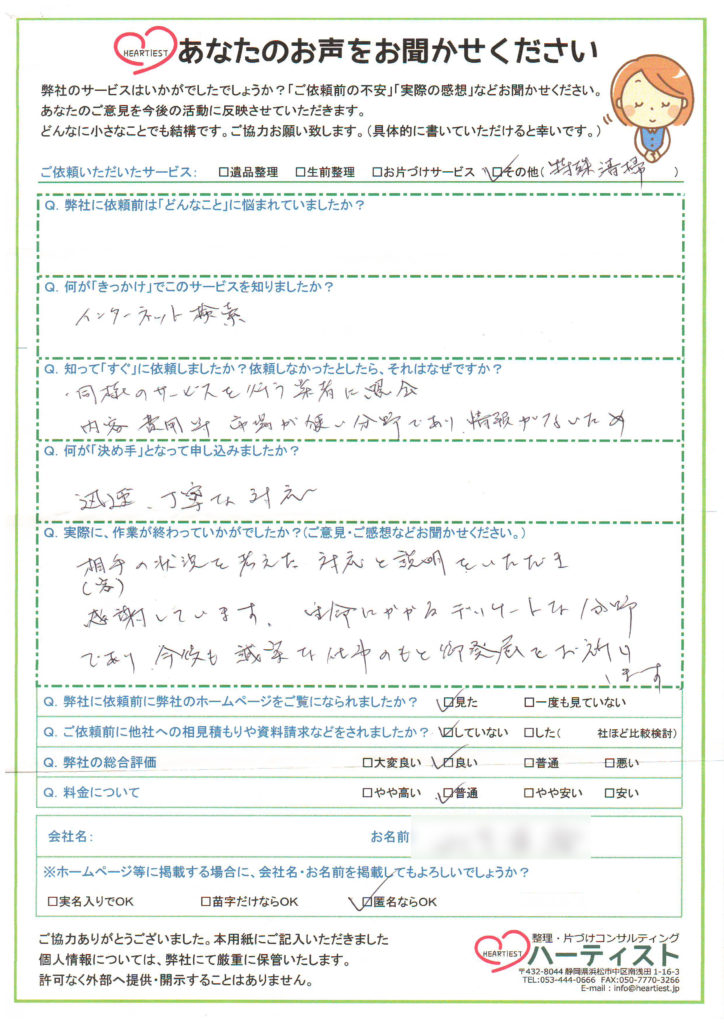 HEARTIEST あなたのお声をお聞かせください
弊社のサービスはいかがでしたでしょうか？「ご依頼前の不安」「実際の感想」などお聞かせください。
あなたのご意見を今後の活動に反映させていただきます。
どんなに小さなことでも結構です。ご協力お願い致します。(具体的に書いていただけると幸いです。)
ご依頼いただいたサービス： □遺品整理 □生前整理 □お片づけサービス ☑その他( 特殊清掃 )
Q. 弊社に依頼前は「どんなこと」に悩まれていましたか？
Q. 何が「きっかけ」でこのサービスを知りましたか？
インターネット検索
Q. 知って「すぐ」に依頼しましたか？依頼しなかったとしたら、それはなぜですか？
・同様のサービスを行う業者に照会
内容 費用等 市場が 分野であり、情報がないため
Q. 何が「決め手」となって申し込みましたか？
迅速、丁寧な対応
Q. 実際に、作業が終わっていかがでしたか？(ご意見・ご感想などお聞かせください。)
相手の状況を考えた 対応と説明をいただき
(客)
感謝しています。 生命にかかるデリケートな分野
であり、今後も誠実な仕事のもと御発展をお祈り
います
Q. 弊社に依頼前に弊社のホームページをご覧になられましたか？ ☑見た □一度も見ていない
Q. ご依頼前に他社への相見積もりや資料請求などをされましたか？ ☑していない □した( 社ほど比較検討)
Q. 弊社の総合評価 □大変良い ☑良い □普通 □悪い
Q. 料金について □やや高い ☑普通 □やや安い □安い
会社名： お名前
※ホームページ等に掲載する場合に、会社名・お名前を掲載してもよろしいでしょうか？
□実名入りでOK □苗字だけならOK ☑匿名ならOK
ご協力ありがとうございました。本用紙にご記入いただきました
個人情報については、弊社にて厳重に保管いたします。
許可なく外部へ提供・開示することはありません。
整理・片づけコンサルティング
HEARTIEST ハーティスト
〒432-8044 静岡県浜松市中区南浅田 1-16-3
TEL:053-444-0666 FAX:050-7770-3266
E-mail : info@heartiest.jp